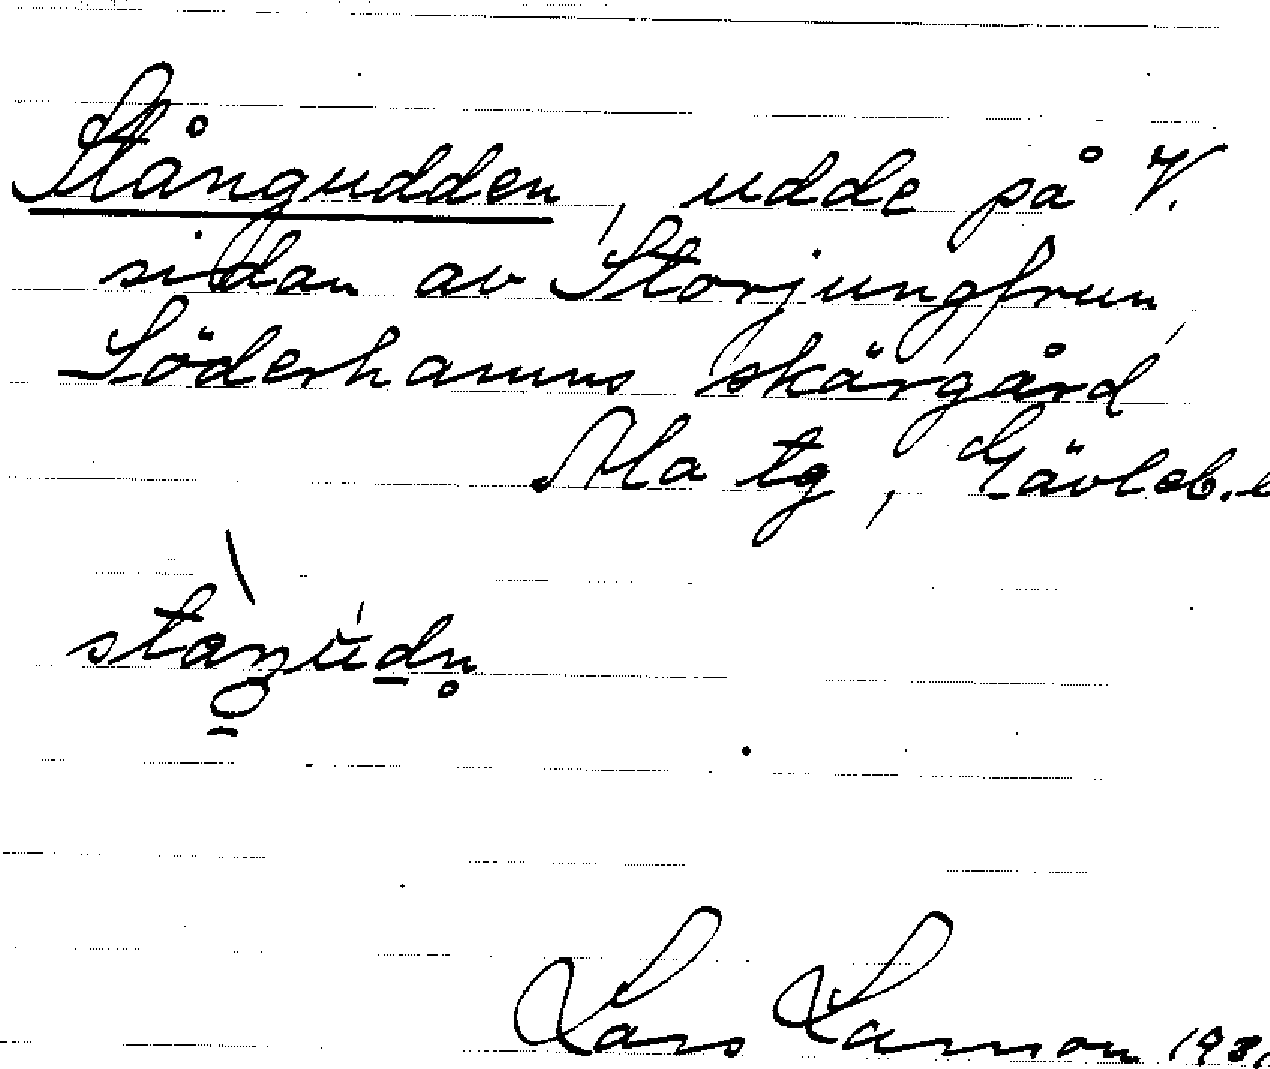 Stångudden, udde på V.
sidan av Storjungfrun,
Söderhamns skärgård
Ala tg, Gävleb.
Lars Larsson 193